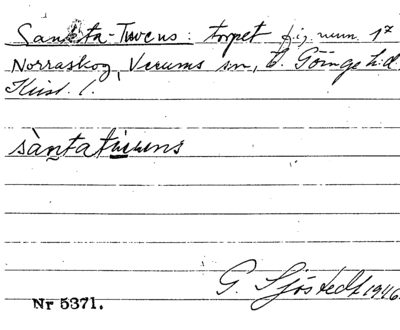 Sankta-Tuvens: torpet på, num. 17
Norraskog, Verums sn, V. Göinge hd.
Krist. l.
sàntatuvens
G. Sjöstedt 1946.
Nr 5371.